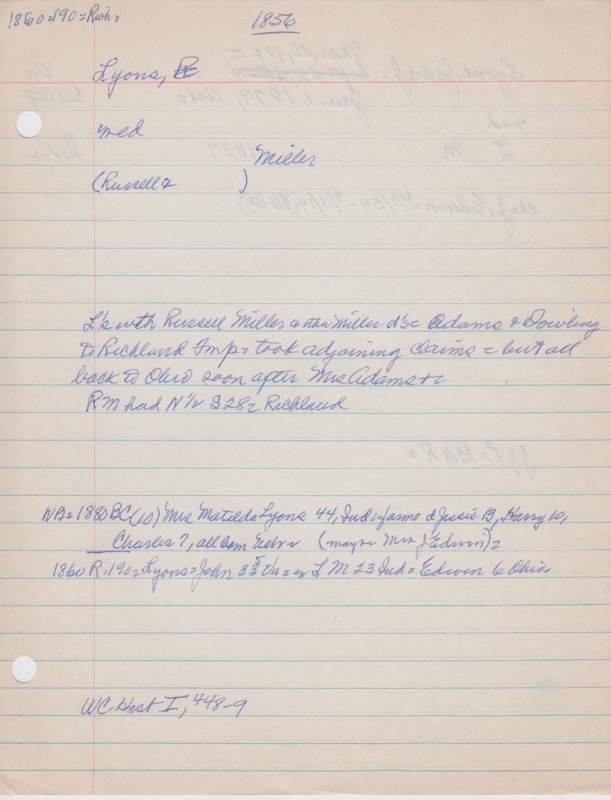 1860=190=Rich=
1856
Lyons, R
med
Miller
(Russell & )
L's with Russell Miller & other Miller d's= Adams & Dowling
to Richland Imp= took adjoining claims = but all
back to Ohio soon after Mrs Adams
RM had N½ S28= Richland
NB= 1880 BC (10) Mrs Matilda Lyons 44, Ind= farmo d Jessie 13, Harry 10,
Charles 7, all born (maybe Mrs J Edwin)=
1860 R=190= Lyons= John 33 Va= w L M 23 Ind= Edwin 6 Ohio=
WC Hist I, 448-9